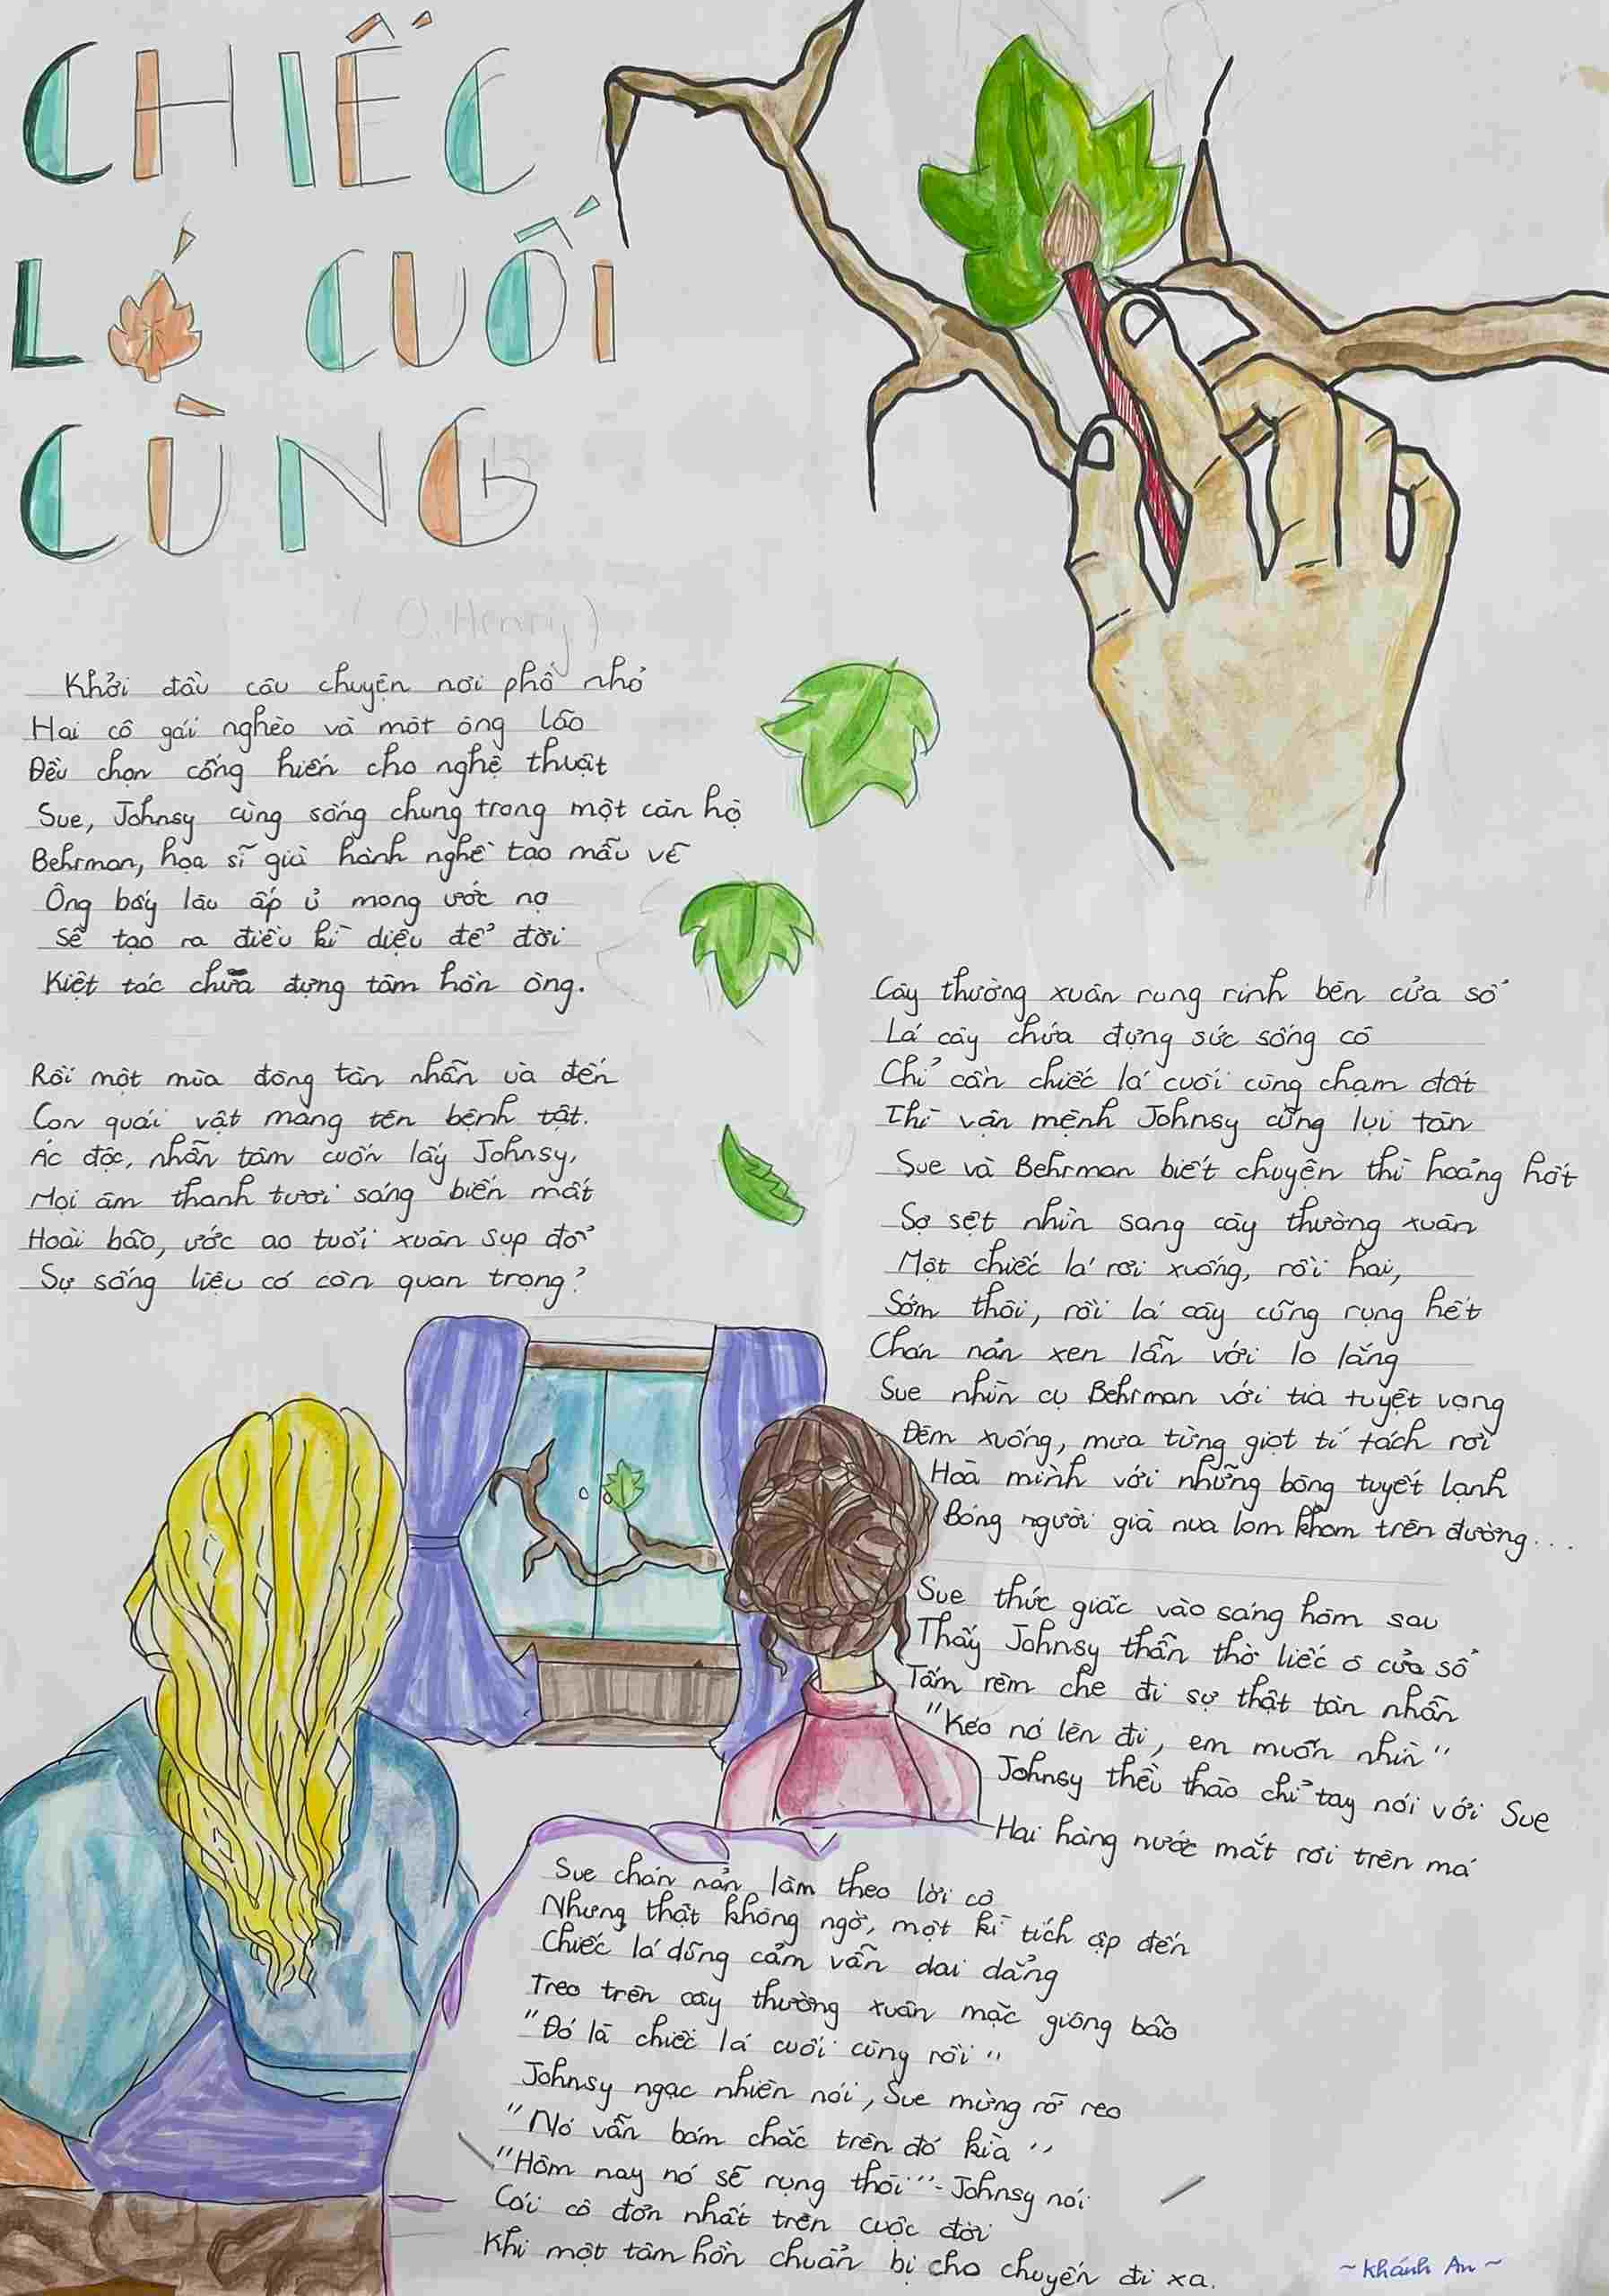 CHIẾC
LÁ CUỐI
CÙNG
(O. Henry)
Khởi đầu câu chuyện nơi phố nhỏ
Hai cô gái nghèo và một ông lão
Đều chọn cống hiến cho nghệ thuật
Sue, Johnsy cùng sống chung trong một căn hộ
Behrman, họa sĩ già hành nghề tạo mẫu vẽ
Ông bấy lâu ấp ủ mong ước nọ
Sẽ tạo ra điều kì diệu để đời
Kiệt tác chứa đựng tâm hồn ông.
Rồi một mùa đông tàn nhẫn ùa đến
Con quái vật mang tên bệnh tật.
Ác độc, nhẫn tâm cuốn lấy Johnsy,
Mọi âm thanh tươi sáng biến mất
Hoài bão, ước ao tuổi xuân sụp đổ
Sự sống liệu có còn quan trọng?
Cây thường xuân rung rinh bên cửa sổ
Lá cây chứa đựng sức sống cô
Chỉ cần chiếc lá cuối cùng chạm đất
Thì vận mệnh Johnsy cũng lụi tàn
Sue và Behrman biết chuyện thì hoảng hốt
Sợ sệt nhìn sang cây thường xuân
Một chiếc lá rơi xuống, rồi hai,
Sớm thôi, rồi lá cây cũng rụng hết
Chán nản xen lẫn với lo lắng
Sue nhìn cụ Behrman với tia tuyệt vọng
Đêm xuống, mưa từng giọt tí tách rơi
Hoà mình với những bông tuyết lạnh
Bóng người già nua lom khom trên đường...
Sue thức giấc vào sáng hôm sau
Thấy Johnsy thẫn thờ liếc ô cửa sổ
Tấm rèm che đi sự thật tàn nhẫn
"Kéo nó lên đi, em muốn nhìn"
Johnsy thều thào chỉ tay nói với Sue
Hai hàng nước mắt rơi trên má
Sue chán nản làm theo lời cô
Nhưng thật không ngờ, một kì tích ập đến
Chiếc lá dũng cảm vẫn dai dẳng
Treo trên cây thường xuân mặc giông bão
"Đó là chiếc lá cuối cùng rồi"
Johnsy ngạc nhiên nói, Sue mừng rỡ reo
"Nó vẫn bám chắc trên đó kìa"
"Hôm nay nó sẽ rụng thôi" - Johnsy nói
Cái cô đơn nhất trên cuộc đời
Khi một tâm hồn chuẩn bị cho chuyến đi xa.
~Khánh An~